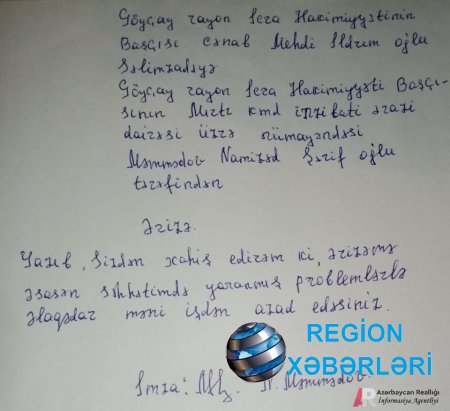 Göyçay rayon İcra Hakimiyyətinin
Başçısı cənab Mehdi İldırım oğlu
Səlimzadəyə
Göyçay rayon İcra Hakimiyyəti Başçı-
sının Mırtı kənd inzibati ərazi
dairəsi üzrə nümayəndəsi
Məmmədov Namizəd Şərif oğlu
tərəfindən
Ərizə.
Yazıb, Sizdən xahiş edirəm ki, ərizəmə
əsasən səhhətimdə yaranmış problemlərlə
əlaqədar məni işdən azad edəsiniz.
REGION
XƏBƏRLƏRİ
İmza: N. Məmmədov
Azərbaycan Reallığı
İnformasiya Agentliyi